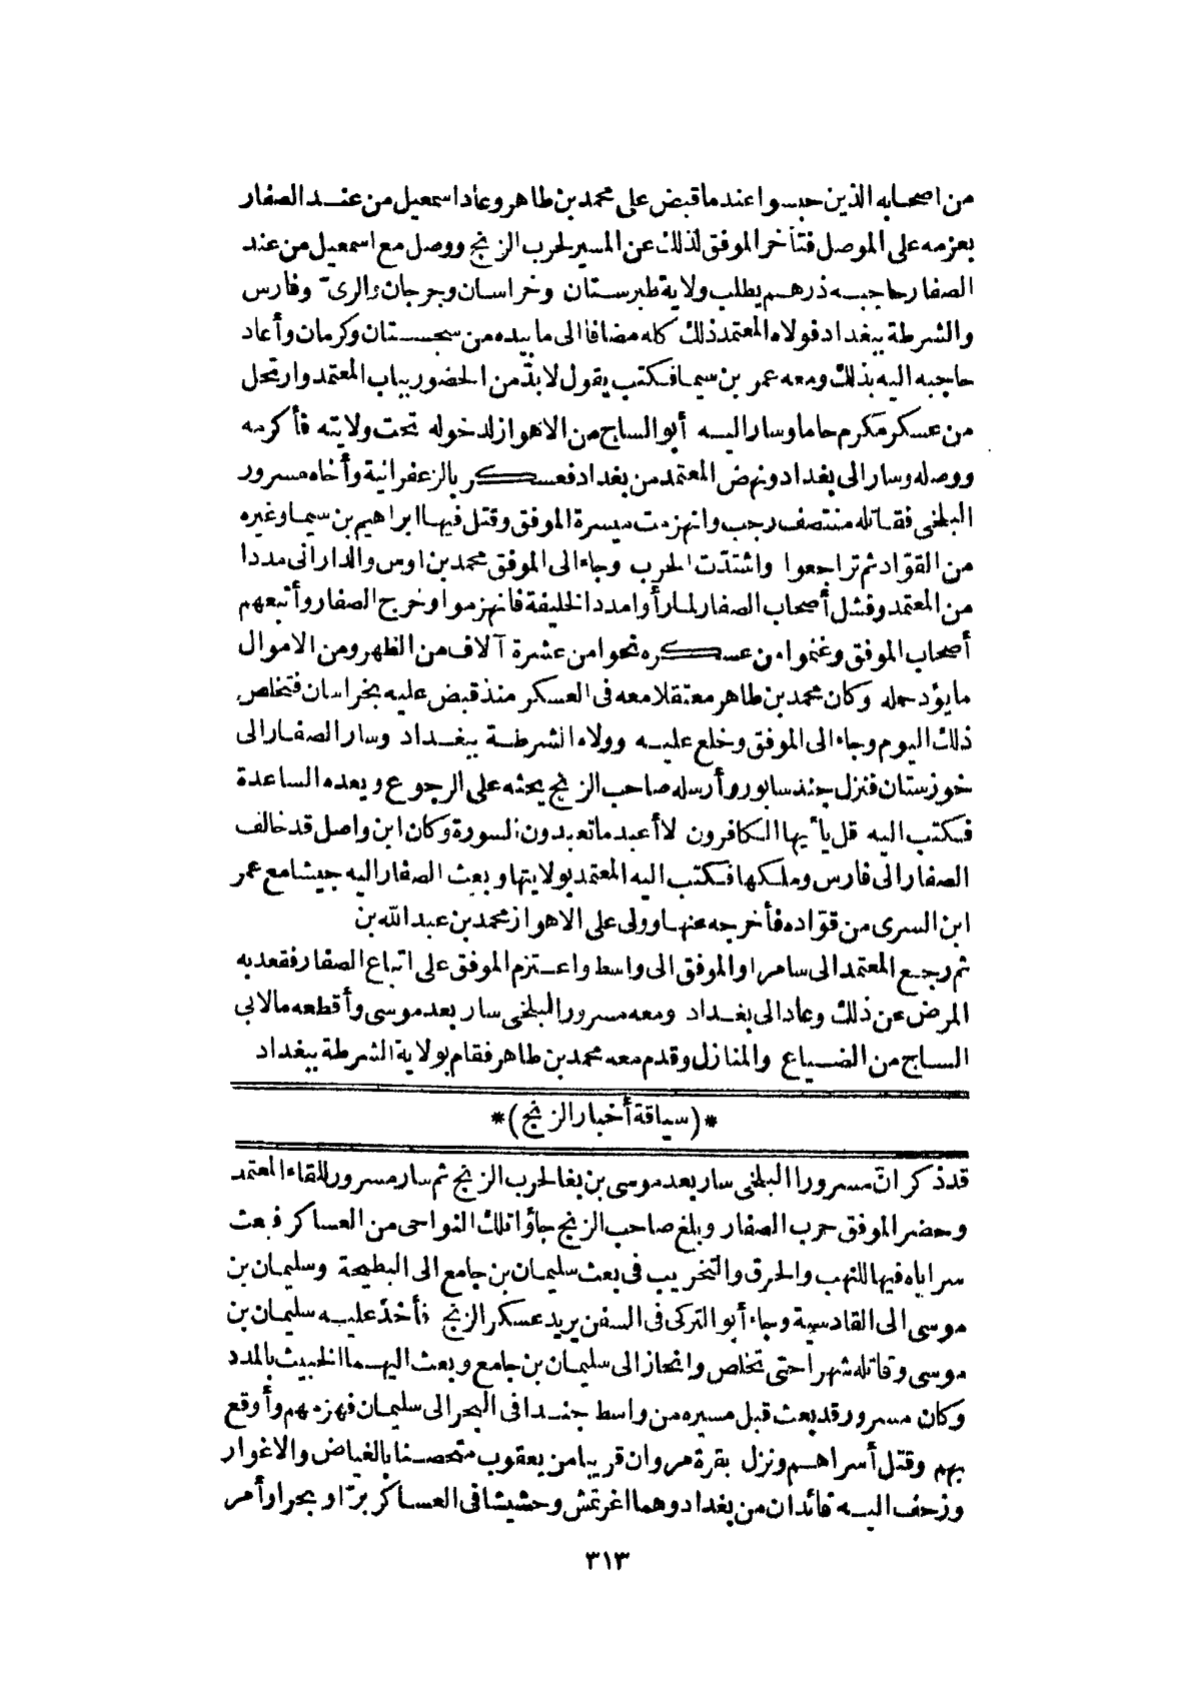 من اصحابه الذين حبسوا عندما قبض على محمد بن طاهر وعاد اسمعيل من عند الصفار
بعزمه على الموصل فتأخر الموفق لذلك عن المسير لحرب الزنج ووصل مع اسمعيل من عند
الصفار حاجبه ذرهم يطلب ولاية طبرستان وخراسان وجرجان والرىّ وفارس
والشرطة ببغداد فولاه المعتمد ذلك كله مضافا الى ما بيده من سجستان وكرمان وأعاد
حاجبه اليه بذلك ومعه عمر بن سيما فكتب يقول لا بدّ من الحضور بباب المعتمد وارتحل
من عسكر مكرم حاما وسار اليه أبو الساج من الاهواز لدخوله تحت ولايته فأكرمه
ووصله وسار الى بغداد ونهض المعتمد من بغداد فعسكر بالزعفرانية وأخاه مسرور
البلخى فقاتله منتصف رجب وانهزمت ميسرة الموفق وقتل فيها ابراهيم بن سيما وغيره
من القوّاد ثم تراجعوا واشتدّت الحرب وجاء الى الموفق محمد بن اوس والدارانى مددا
من المعتمد وفشل أصحاب الصفار لما رأوا مدد الخليفة فانهزموا وخرج الصفار وأتبعهم
أصحاب الموفق وغنموا من عسكره نحوا من عشرة آلاف من الظهر ومن الاموال
ما يؤد حمله وكان محمد بن طاهر معتقلا معه فى العسكر منذ قبض عليه بخراسان فتخلص
ذلك اليوم وجاء الى الموفق وخلع عليه وولاه الشرطة ببغداد وسار الصفار الى
خوزستان فنزل جندسابور وأرسله صاحب الزنج يحثه على الرجوع ويعده الساعدة
فكتب اليه قل يأيها الكافرون لا أعبد ما تعبدون السورة وكان ابن واصل قد خالف
الصفار الى فارس وملكها فكتب اليه المعتمد بولايتها وبعث الصفار اليه جيشا مع عمر
ابن السرى من قوّاده فأخرجه عنها وولى على الاهواز محمد بن عبد الله بن
ثم رجع المعتمد الى سامرا والموفق الى واسط واعتزم الموفق على اتباع الصفار فقعد به
المرض عن ذلك وعاد الى بغداد ومعه مسرور البلخى سار بعد موسى وأقطعه ما لابى
الساج من الضياع والمنازل وقدم معه محمد بن طاهر فقام بولاية الشرطة ببغداد
*(سياقة أخبار الزنج)*
قد ذكر انّ مسرورا البلخى سار بعد موسى بن بغا لحرب الزنج ثم سار مسرور للقاء المعتمد
وحضر الموفق حرب الصفار وبلغ صاحب الزنج جاؤا تلك النواحى من العساكر فبعث
سراياه فيها للنهب والحرق والتخريب فى بعث سليمان بن جامع الى البطيحة وسليمان بن
موسى الى القادسية وجاء أبو التركى فى السفن يريد عسكر الزنج فأخذ عليه سليمان بن
موسى وقاتله شهرا حتى تخلص وانحاز الى سليمان بن جامع وبعث اليهما الخبيث بالمدد
وكان مسرور قد بعث قبل مسيره من واسط جندا فى البحر الى سليمان فهزمهم وأوقع
بهم وقتل أسراهم ونزل بقرة مروان قريبا من يعقوب متحصنا بالغياض والاغوار
وزحف اليه قائدان من بغداد وهما اغرتمش وحشيشا فى العساكر برّا وبحرا وأمر
٣١٣